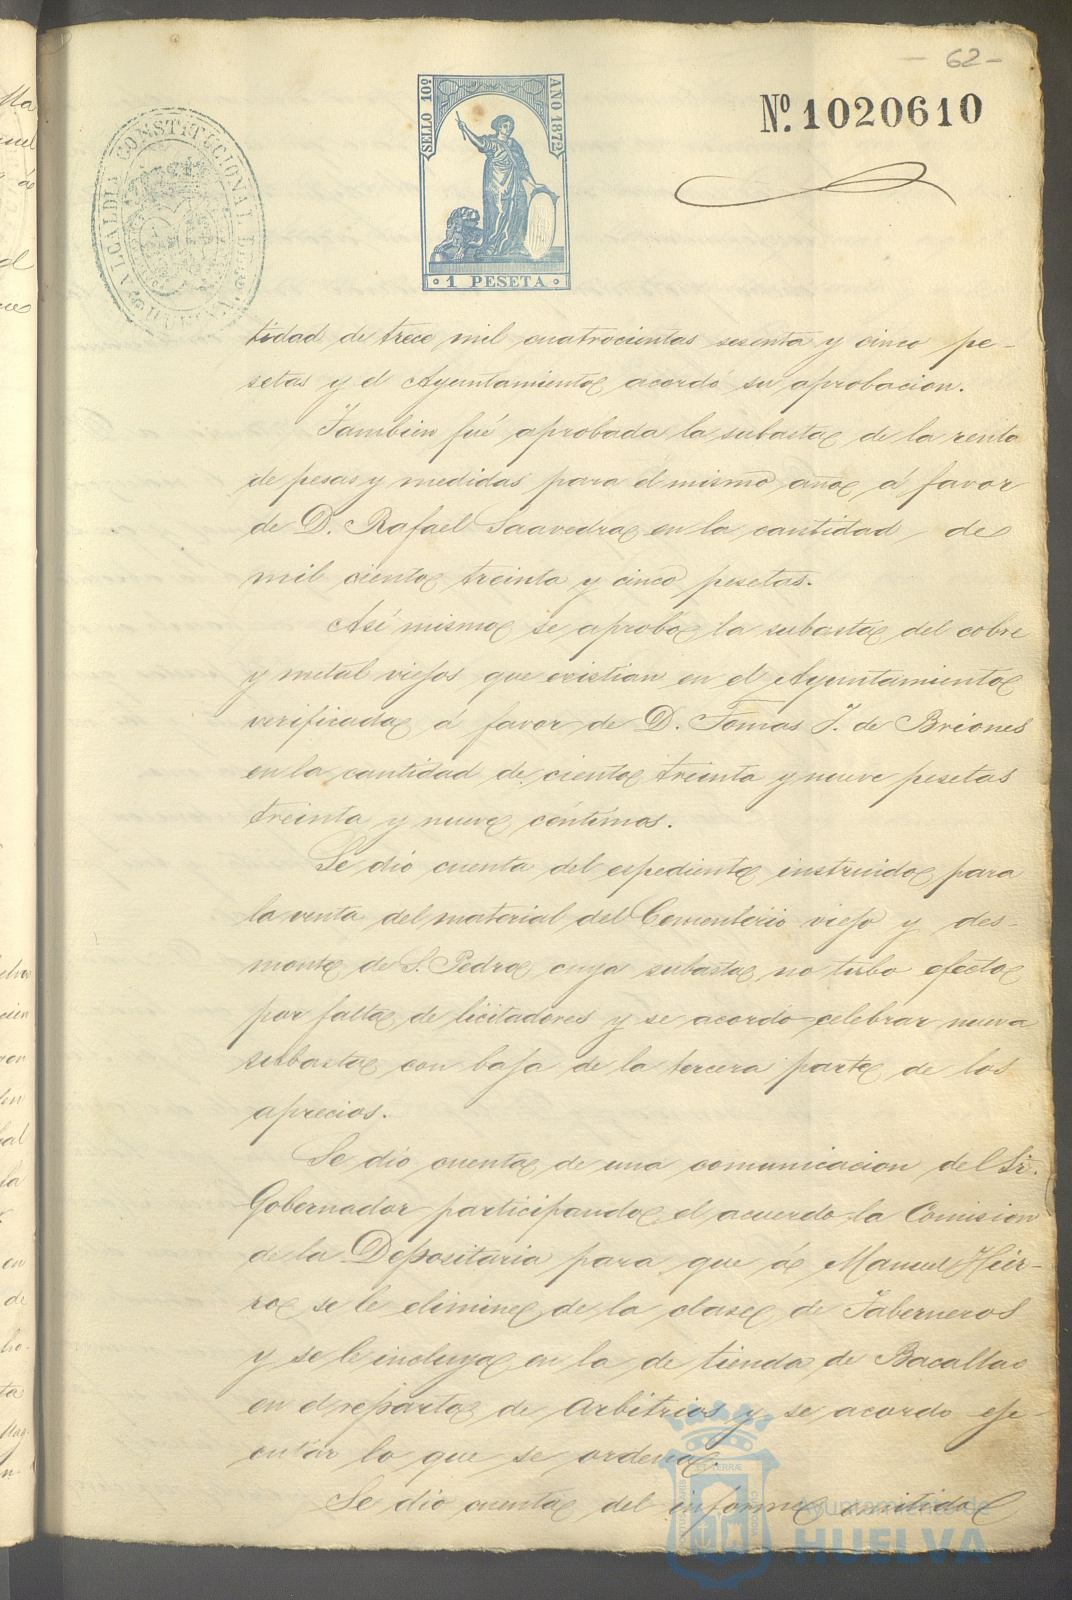 62-
SELLO 10º
AÑO 1872
Nº. 1020610
ALCALDIA CONSTITUCIONAL DE
1 PESETA
tidad de trece mil cuatrocientas sesenta y cinco pe-
setas y el Ayuntamiento acordó su aprobacion.
Tambien fué aprobada la subasta de la renta
de pesas y medidas para el mismo año á favor
de D. Rafael Saavedra en la cantidad de
mil ciento treinta y cinco pesetas.
Asi mismo se aprobó la subasta del cobre
y metal viejos que existian en el Ayuntamiento
verificada á favor de D. Tomas J. de Briones
en la cantidad de ciento treinta y nueve pesetas
treinta y nueve céntimos.
Se dió cuenta del espediente instruido para
la venta del material del Cementerio viejo y des-
monte de S. Pedro cuya subasta no tubo efecto
por falta de licitadores y se acordó celebrar nueva
subasta con baja de la tercera parte de los
aprecios.
Se dió cuenta de una comunicacion del Sr.
Gobernador participando el acuerdo la Comision
de la Depositaria para que á Manuel Hier-
ro se le elimine de la clase de Taberneros
y se le incluya en la de tienda de Bacallao
en el reparto de Arbitrios y se acordo eje-
cutar lo que se ordena.
Se dió cuenta del informe emitido
Ayuntamiento de
HUELVA